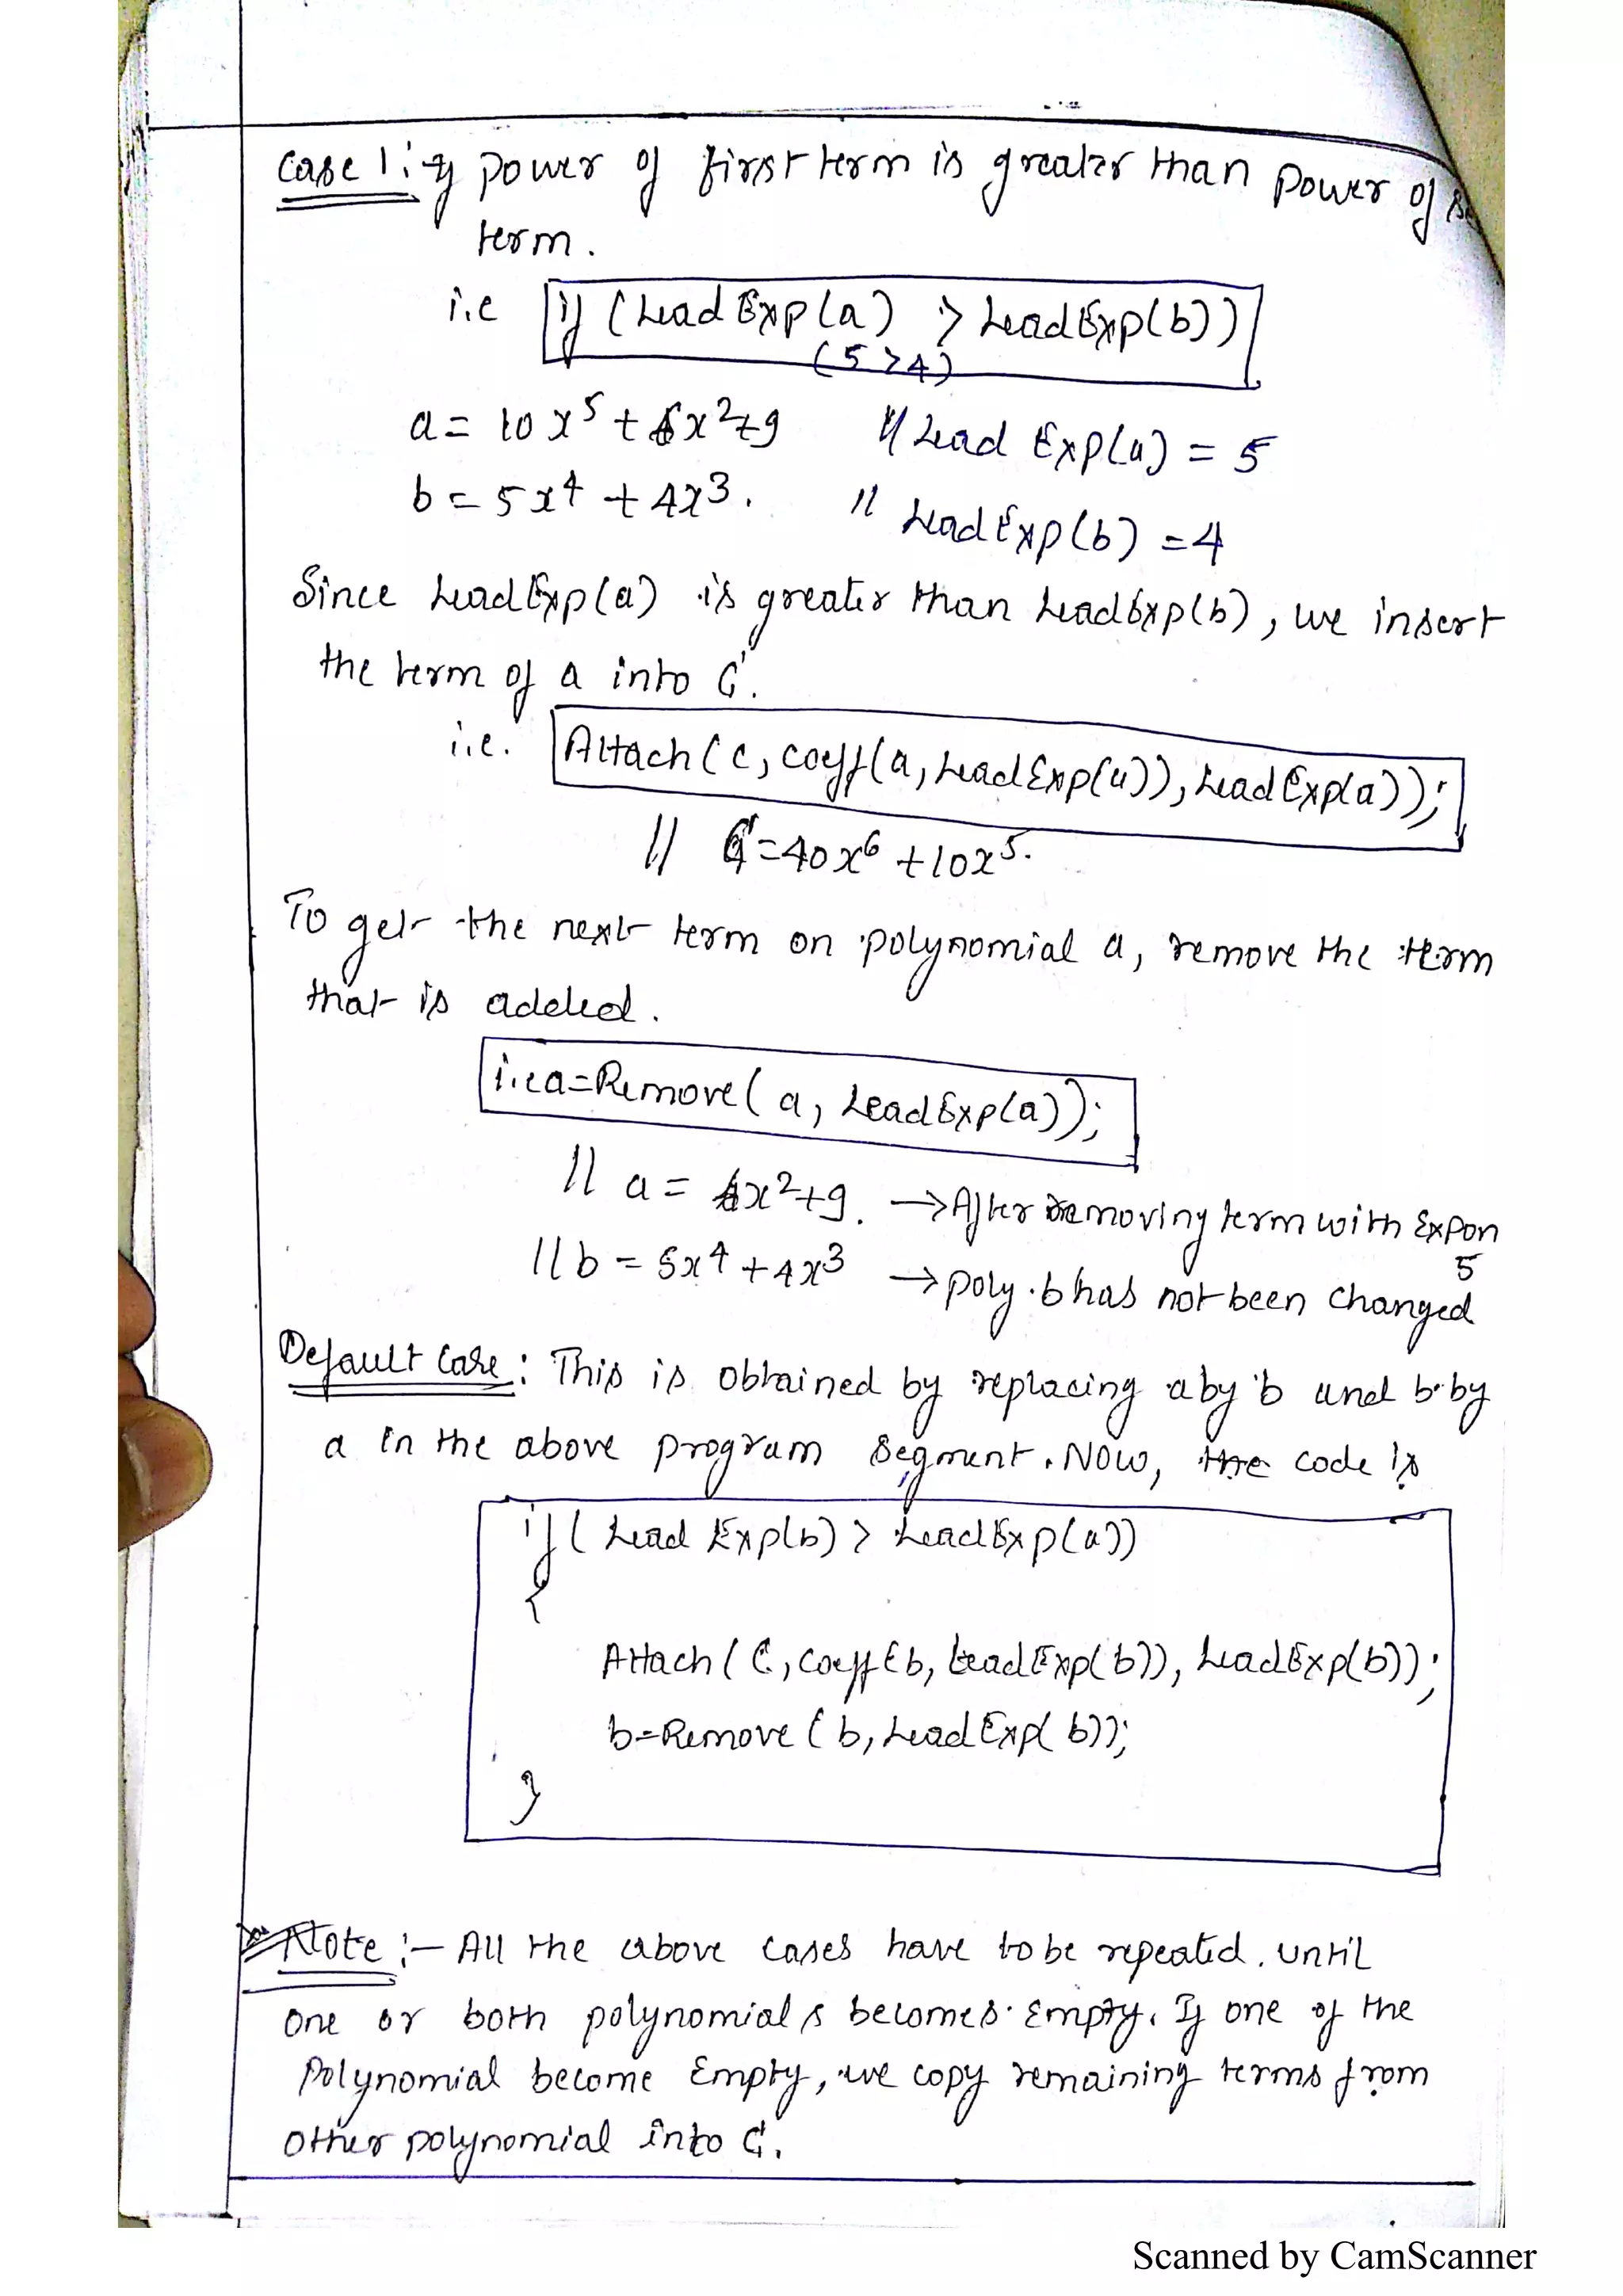 Case 1: if power of first term is greater than power of
term.
i.e if (LeadExp(a) > LeadExp(b))
(5>4)
a= 10x⁵ + x²+9 // Lead Exp(a) = 5
b = 5x⁴ + 4x³. // LeadExp(b) =4
Since LeadExp(a) is greater than LeadExp(b), we insert
the term of a into C.
i.e. Attach(c, coeff(a, LeadExp(a)), LeadExp(a));
// C=40x⁶ +10x⁵.
To get the next term on polynomial a, remove the term
that is added.
i.e a=Remove( a, LeadExp(a));
// a = x²+9. →After removing term with Expon
5
//b = 5x⁴ +4x³ →poly.b has not been changed
Default Case: This is obtained by replacing a by b and b by
a in the above program segment. Now, the code is
if( Lead Exp(b) > LeadExp(a))
{
Attach( C, coeff(b, LeadExp(b)), LeadExp(b));
b=Remove( b, LeadExp( b));
}
Note :- All the above cases have to be repeated. until
one or both polynomials becomes Empty. If one of the
Polynomial become Empty, we copy remaining terms from
other polynomial into C.
Scanned by CamScanner